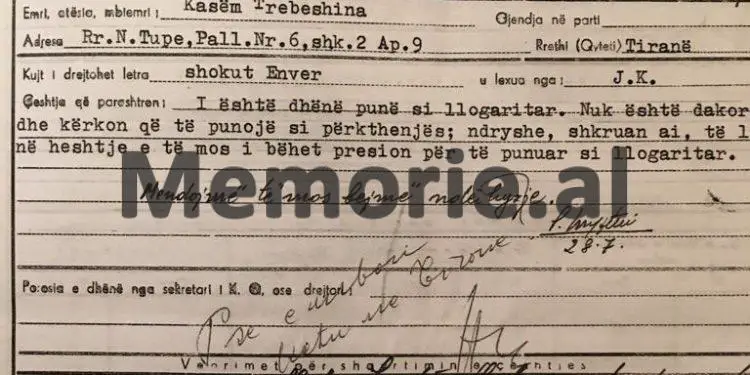 Emri, atësia, mbiemri: Kasëm Trebeshina
Gjendja në parti
Adresa Rr.N.Tupe,Pall.Nr.6,shk.2 Ap.9 Rrethi (Qyteti) Tiranë
Kujt i drejtohet letra shokut Enver u lexua nga: J.K.
Çështja që parashtron: I është dhënë punë si llogaritar. Nuk është dakor
dhe kërkon që të punojë si përkthenjës; ndryshe, shkruan ai, të l
në heshtje e të mos i bëhet presion për të punuar si llogaritar.
Memorie.al
Mendojmë të mos bëjmë ndërhyrje.
28.7.
Porosia e dhënë nga sekretari i K. Q. ose drejtori
Pse e
Tiranë
Veprimet për shqyrtimin e çështjes